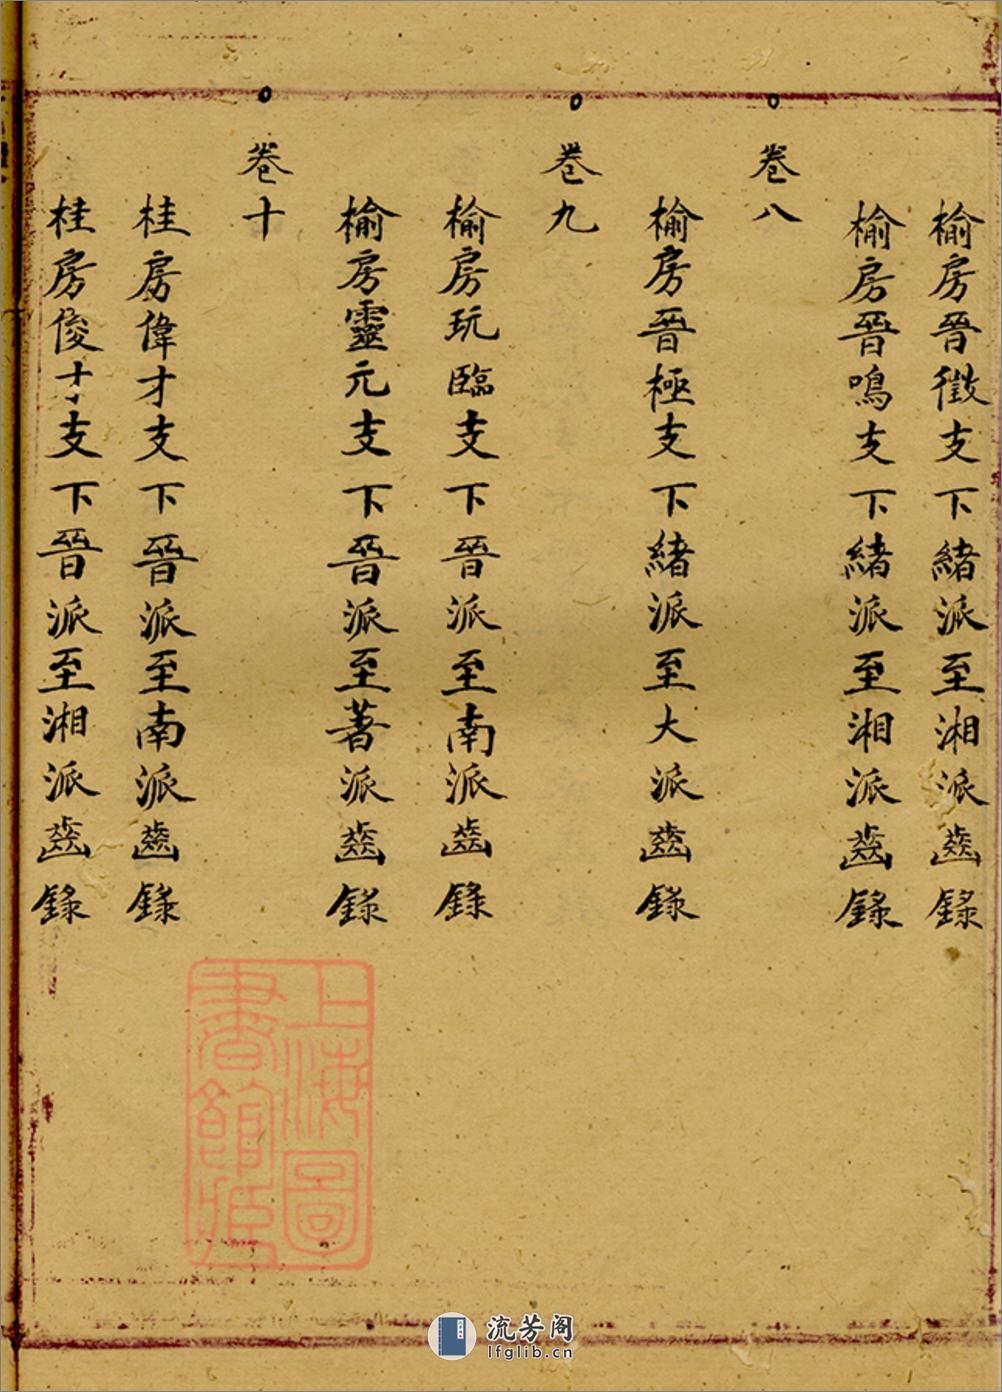 榆房晉徵支下緒派至湘派齒錄
榆房晉鳴支下緒派至湘派齒錄
卷八
榆房晉極支下緒派至大派齒錄
卷九
榆房玩臨支下晉派至南派齒錄
榆房靈元支下晉派至著派齒錄
卷十
桂房偉才支下晉派至南派齒錄
桂房俊才支下晉派至湘派齒錄
上海圖
書館藏
流芳阁
lfglib.cn